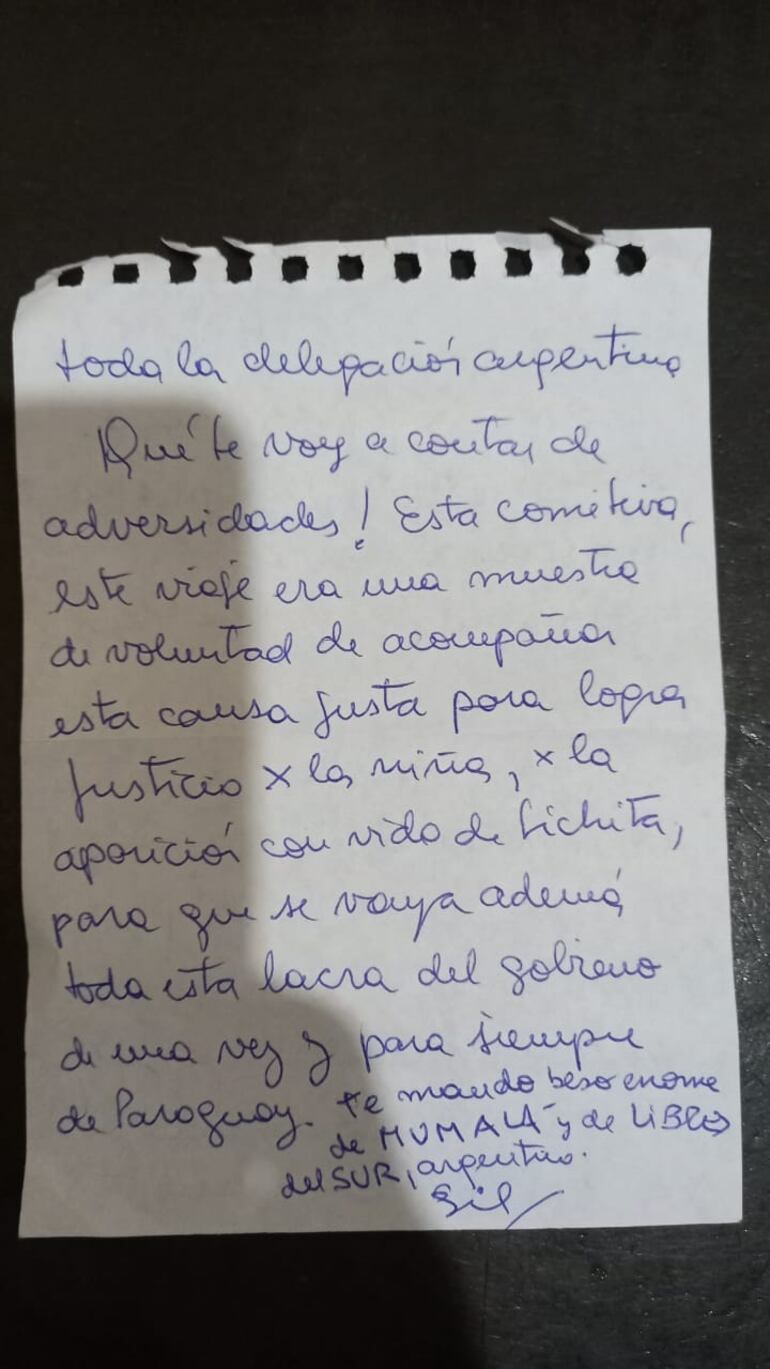 toda la delegación argentina
Qué te voy a contar de
adversidades! Esta comitiva,
este viaje era una muestra
de voluntad de acompañar
esta causa justa para lograr
Justicia x la niña, x la
aparición con vida de Lichita,
para que se vaya además
toda esta lacra del gobierno
de una vez y para siempre
de Paraguay. te mando beso enorme
de MUMALÁ y de LIBRES
del SUR, argentina.
Sil